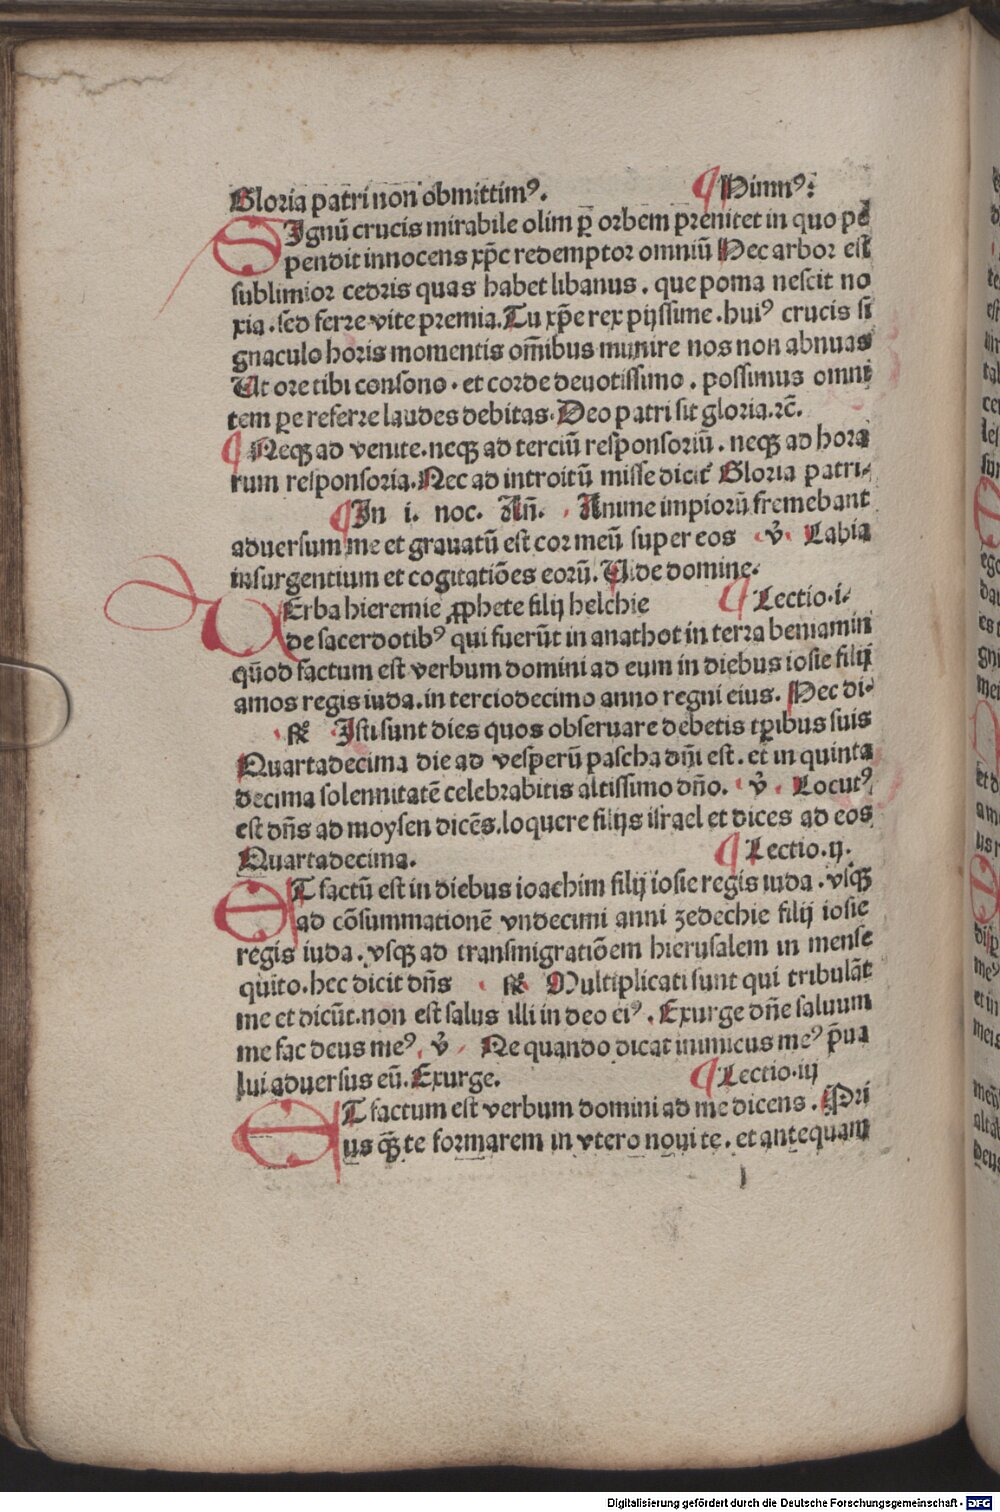 Gloria patri non obmittimꝰ. ¶ Himnꝰ:
SIgnū crucis mirabile olim ꝑ orbem prenitet in quo pe
pendit innocens xp̄c redemptor omniū Hec arbor est
sublimior cedris quas habet libanus . que poma nescit no
xia . sed ferre vite premia. Tu xp̄e rex pijssime . huiꝰ crucis si
gnaculo horis momentis om̄ibus munire nos non abnuas
Ut ore tibi consono . et corde deuotissimo . possimus omni
tem ꝑe referre laudes debitas. Deo patri sit gloria. ꝛc̄.
¶ Neqꝫ ad venite. neqꝫ ad terciū responsoriū . neqꝫ ad hora
rum responsoria. Nec ad introitū misse dicit̄ Gloria patri.
¶ In i. noc. Añ. Anime impiorū fremebant
aduersum me et grauatū est cor meū super eos . v̄. Labia
insurgentium et cogitatiões eorū. Uide domine.
VErba hieremie ꝓphete filij helchie ¶ Lectio.i.
de sacerdotibꝰ qui fuerūt in anathot in terra beniamin
quod factum est verbum domini ad eum in diebus iosie filij
amos regis iuda. in terciodecimo anno regni eius. Hec di.
℟ Isti sunt dies quos obseruare debetis tꝑibus suis
Quartadecima die ad vesperū pascha dñi est . et in quinta
decima solennitatē celebrabitis altissimo dño. v̄. Locutꝰ
est dñs ad moysen dicēs. loquere filijs isrl̄ael et dices ad eos
Quartadecima. ¶ Lectio.ij.
ET factū est in diebus ioachim filij iosie regis iuda . vsqꝫ
ad cōsummationē vndecimi anni zedechie filij iosie
regis iuda . vsqꝫ ad transmigratiõem hierusalem in mense
quito. hec dicit dñs ℟ Multiplicati sunt qui tribulāt
me et dicūt. non est salus illi in deo eiꝰ . Exurge dñe saluum
me fac deus meꝰ. v̄ Ne quando dicat inimicus meꝰ p̄ua
lui aduersus eū. Exurge. ¶ Lectio.iij
ET factum est verbum domini ad me dicens . Pri
us qꝫ̄ te formarem in vtero noui te . et antequam
Digitalisierung gefördert durch die Deutsche Forschungsgemeinschaft - DFG